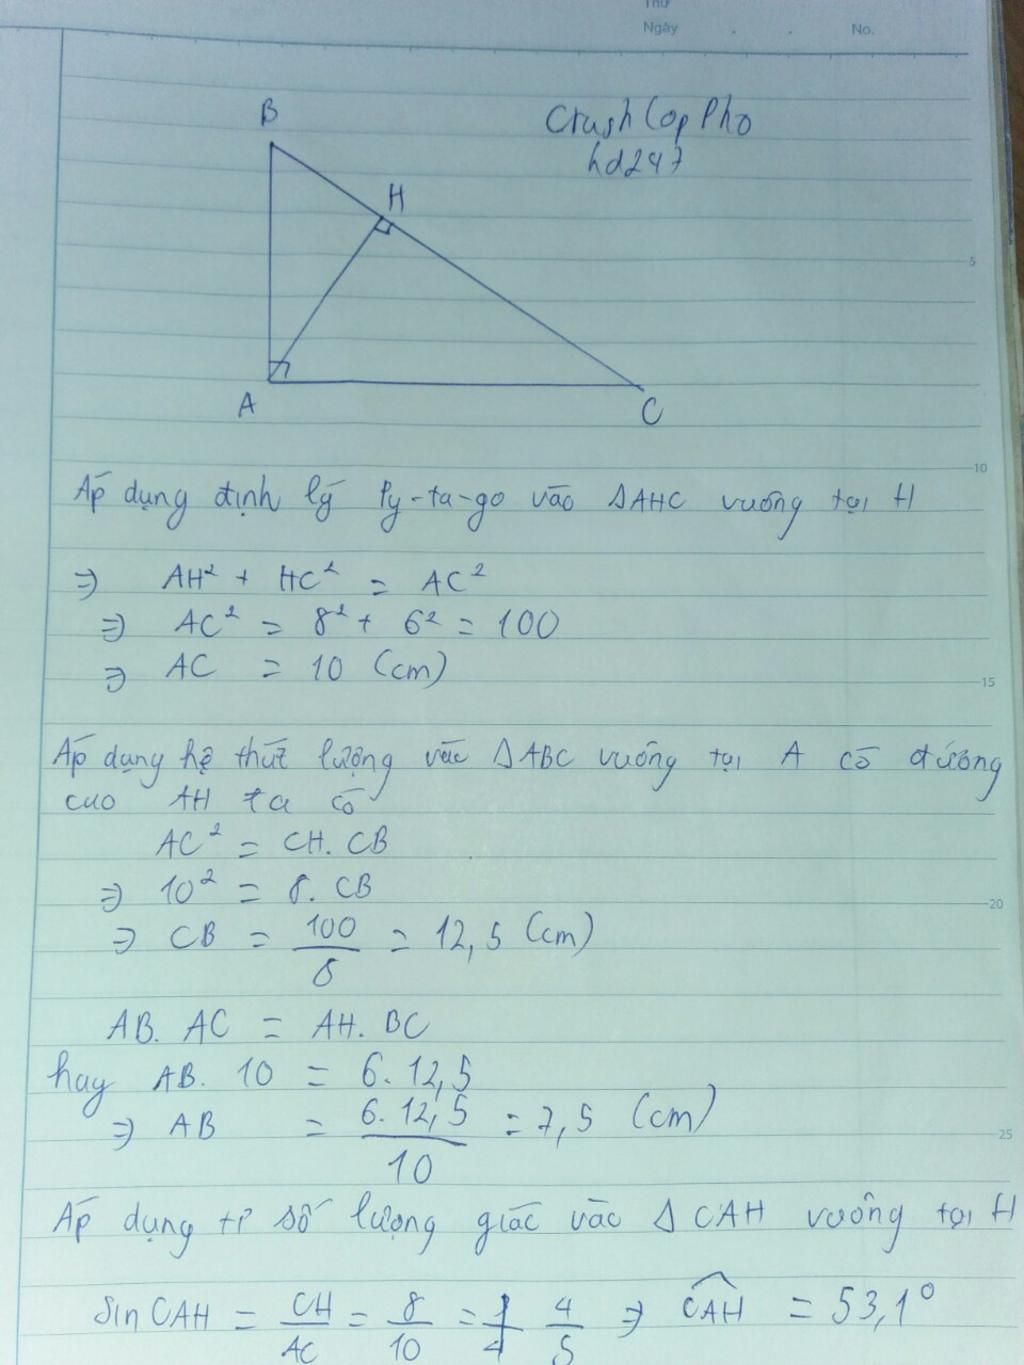 Thứ
Ngày . . No.
B
Crush Cop Pho
hd247
H
5
A
C
10
Áp dụng định lý Py-ta-go vào ΔAHC vuông tại H
⇒ AH² + HC² = AC²
⇒ AC² = 8² + 6² = 100
⇒ AC = 10 (cm)
15
Áp dụng hệ thức lượng vào ΔABC vuông tại A có đường
cao AH ta có
AC² = CH. CB
⇒ 10² = 8. CB
20
⇒ CB = 100/8 = 12,5 (cm)
AB. AC = AH. BC
hay AB. 10 = 6. 12,5
⇒ AB = 6. 12,5/10 = 7,5 (cm)
25
Áp dụng tỉ số lượng giác vào Δ CAH vuông tại H
Sin CAH = CH/AC = 8/10 = 4/5 ⇒ CAH = 53,1°